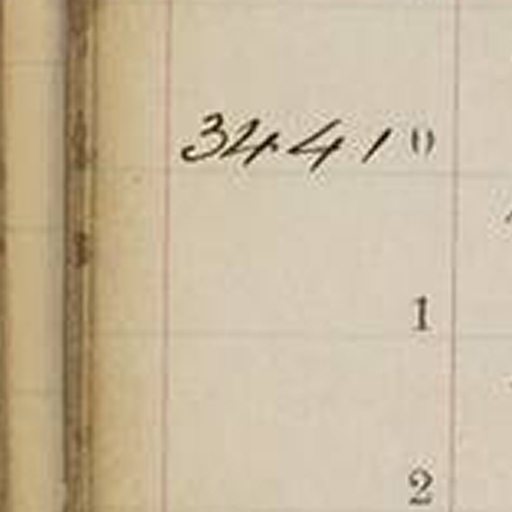 3441 0
1
2